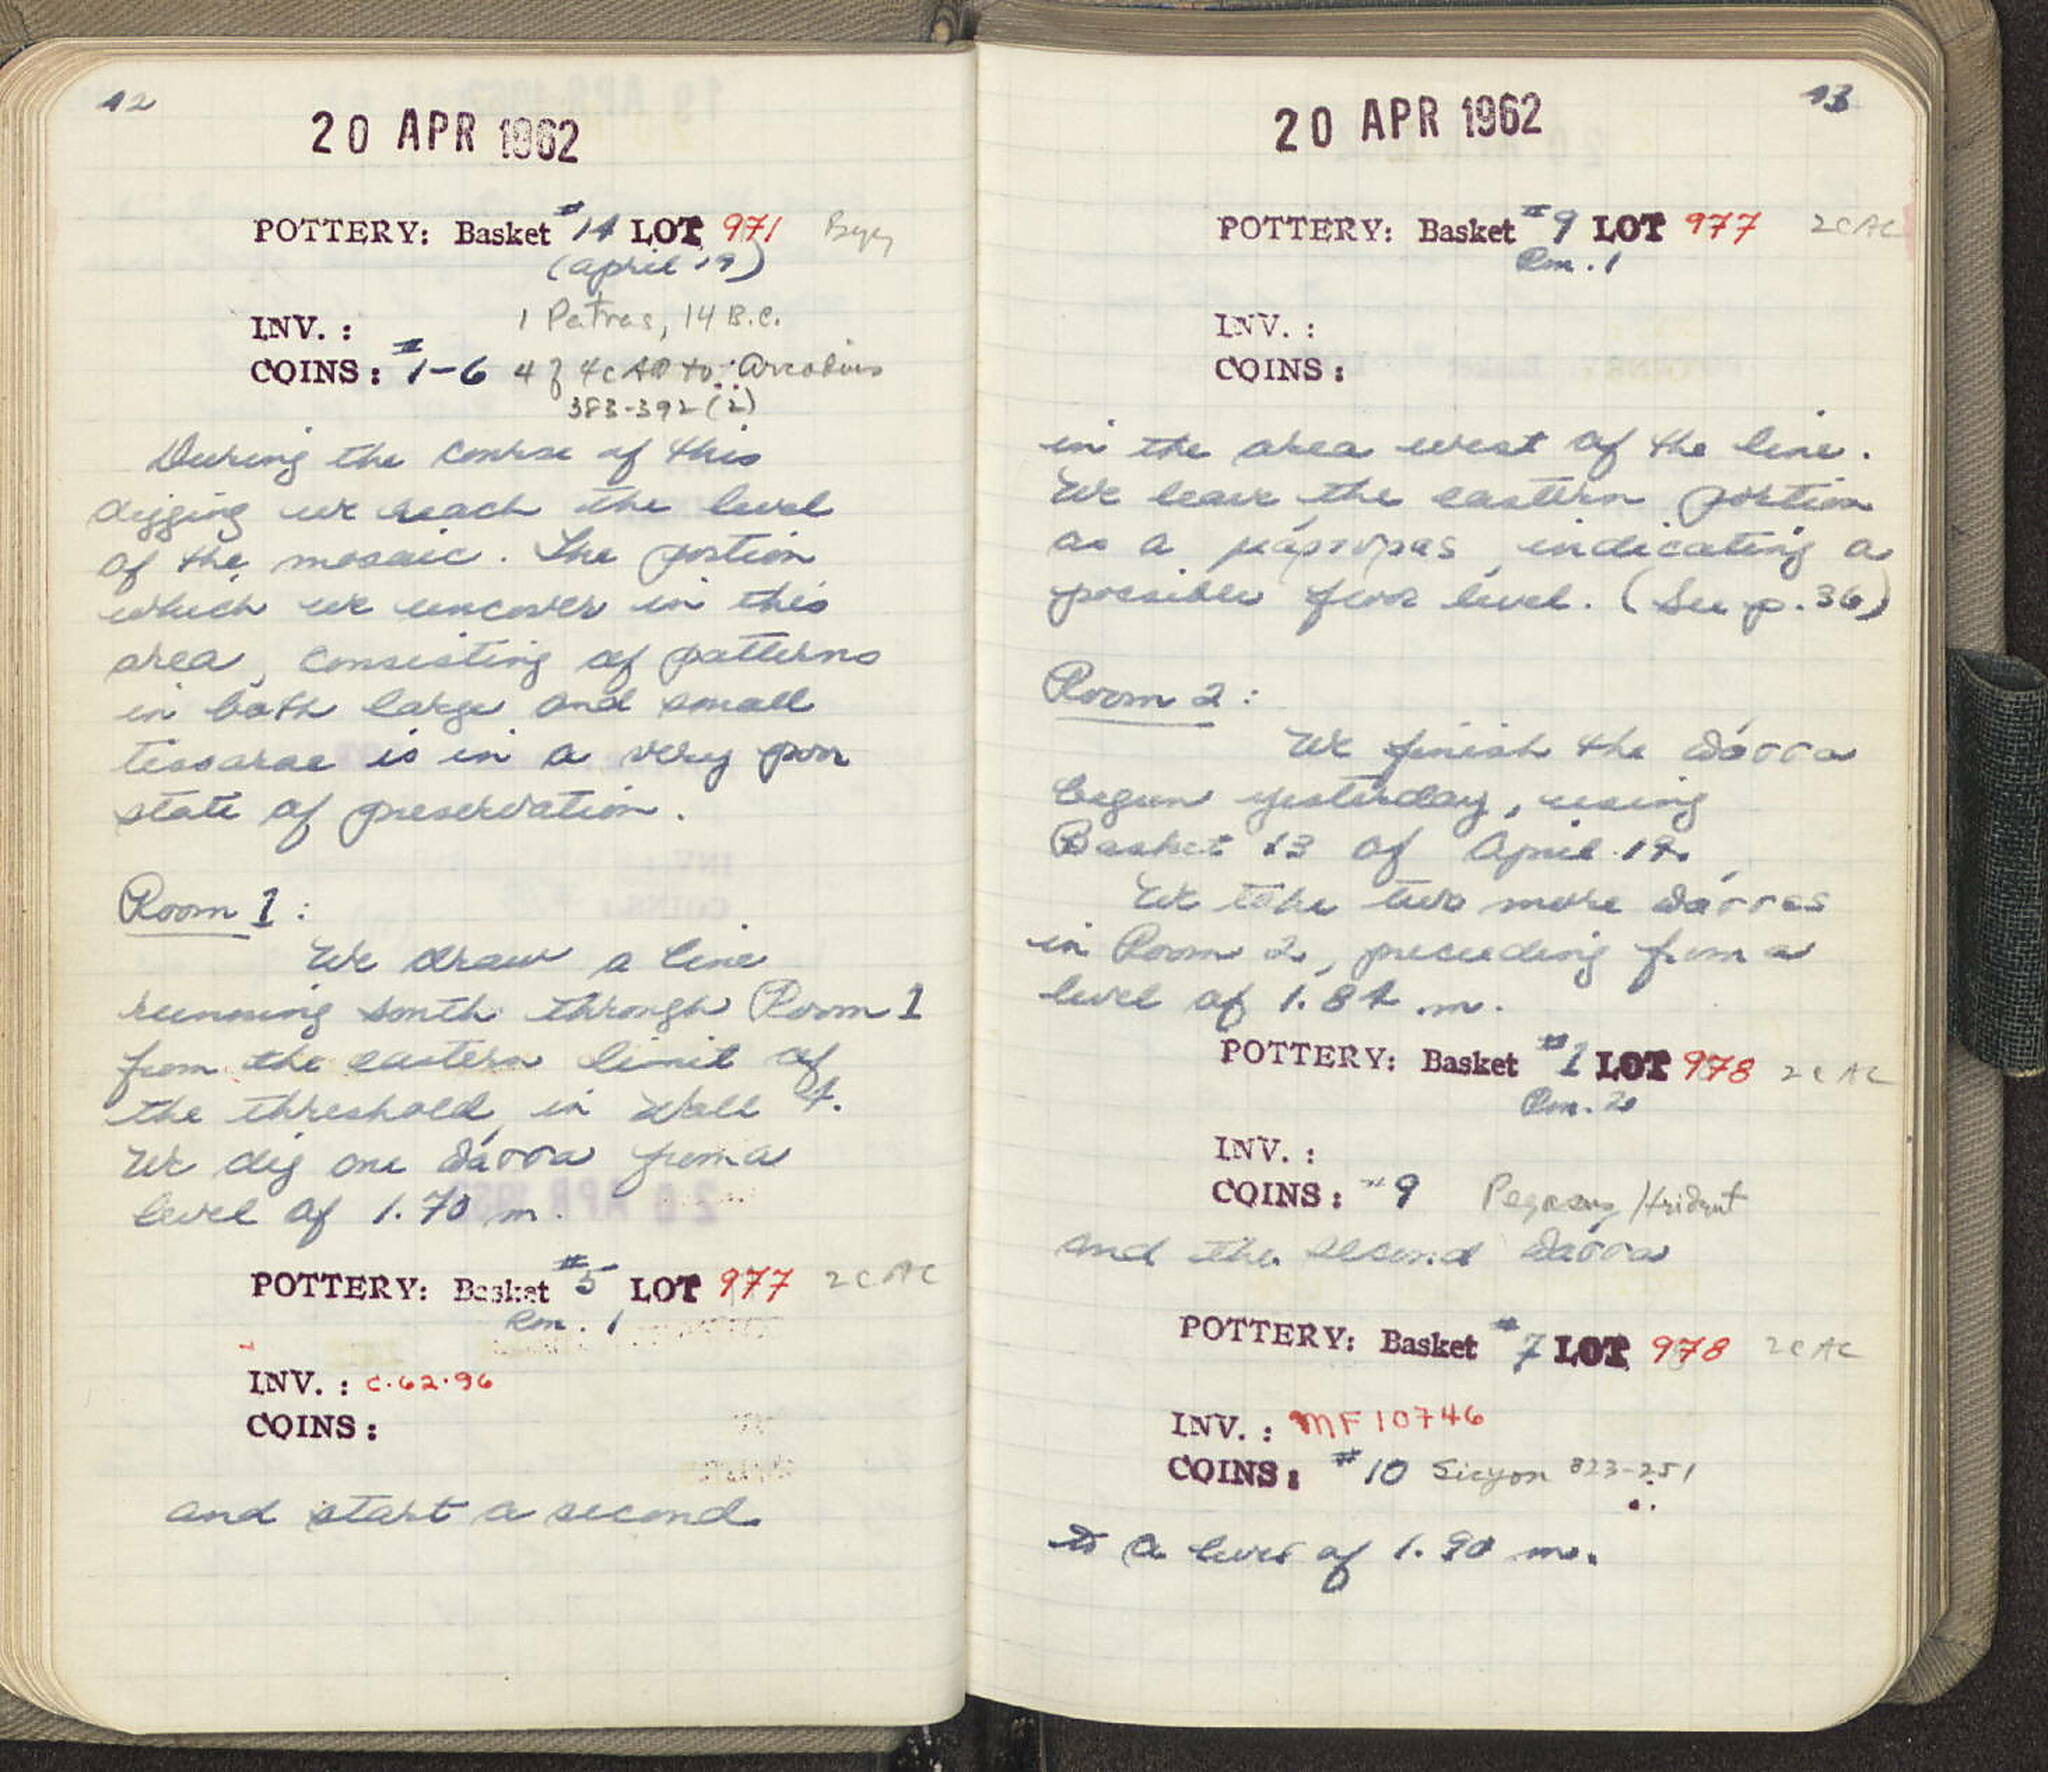 42
20 APR 1962
POTTERY: Basket #14 LOT 971 Byz
(April 19)
1 Patras, 14 B.C.
INV. :
COINS: #1-6 4 of 4c AD to Arcadius
383-392 (2)
During the course of this
digging we reach the level
of the mosaic. The portion
which we uncover in this
area, consisting of patterns
in both large and small
tessarae is in a very poor
state of preservation.
Room 1:
We draw a line
running south through Room 1
from the eastern limit of
the threshold in Wall 4.
We dig one πάσσα from a
level of 1.70 m.
POTTERY: Basket #5 LOT 977 2 C AC
Rm. 1
INV. : C.62.96
COINS:
and start a second
43
20 APR 1962
POTTERY: Basket #9 LOT 977 2 C AC
Rm. 1
INV. :
COINS:
in the area west of the line.
We leave the eastern portion
as a μάρτυρας, indicating a
possible floor level. (See p. 36)
Room 2:
We finish the πάσσα
begun yesterday, using
Basket 13 of April 19.
We take two more πάσσες
in Room 2, preceeding from a
level of 1.84 m.
POTTERY: Basket #1 LOT 978 2 C AC
Rm. 2
INV. :
COINS: #9 Pegasus/trident
and the second πάσσα
POTTERY: Basket #7 LOT 978 2 C AC
INV. : MF 10746
COINS: #10 Sicyon 323-251
to a level of 1.90 m.